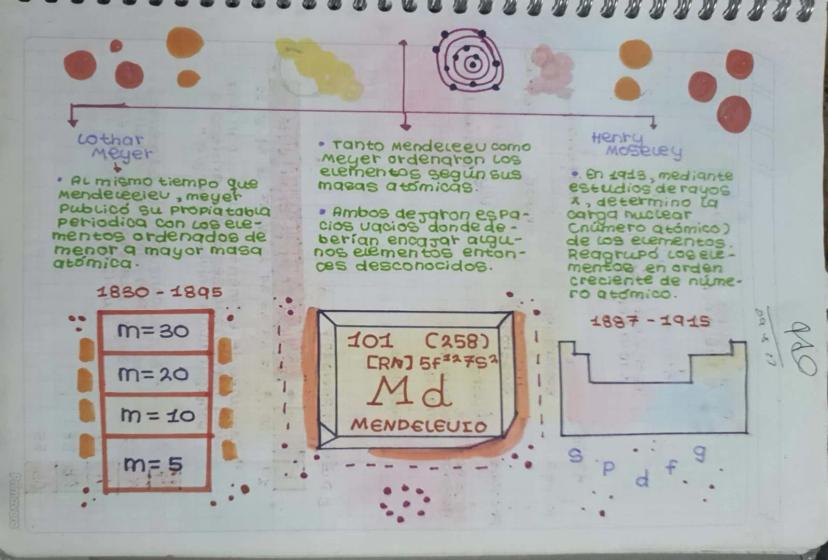 Lothar
Meyer
• Al mismo tiempo que
Mendeleeiev, meyer
publicó su propia tabla
periodica con los ele-
mentos ordenados de
menor a mayor masa
atómica.
1830 - 1895
m=30
m=20
m=10
m=5
• Tanto Mendeleev como
Meyer ordenaron los
elementos según sus
masas atómicas
• Ambos dejaron espa-
cios vacios donde de-
berían encajar algu-
nos elementos enton-
ces desconocidos.
101 (258)
[RN] 5f¹²7s²
Md
MENDELEVIO
Henry
Moseley
• En 1913, mediante
estudios de rayos
x, determino la
carga nuclear
(número atómico)
de los elementos.
Reagrupó los ele-
mentos en orden
creciente de núme-
ro atómico.
1887 - 1915
s p d f g